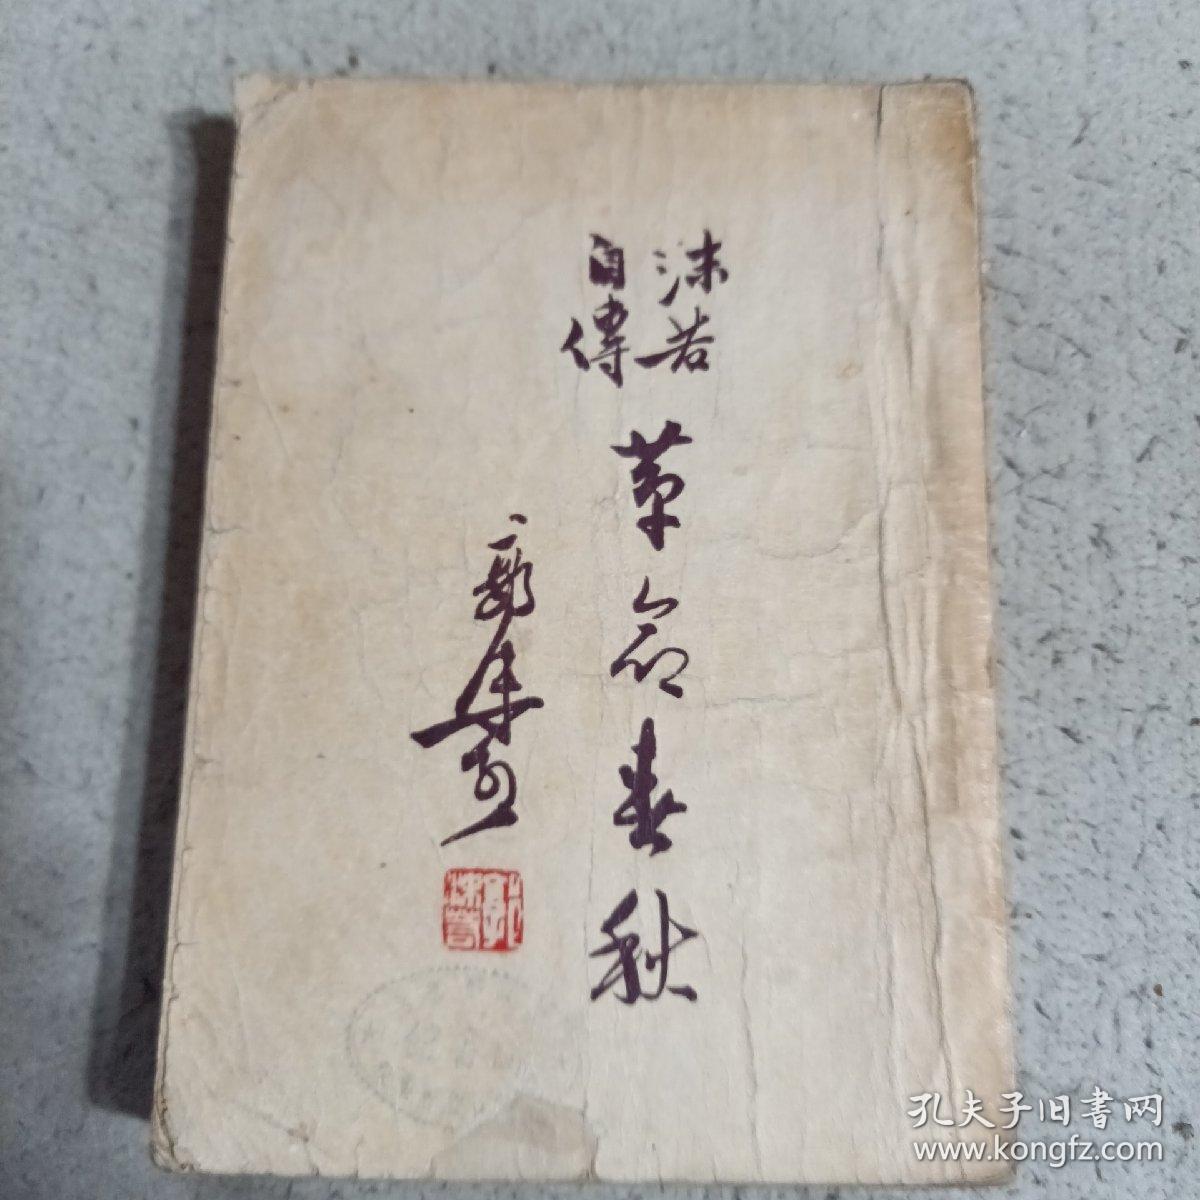 沫若
自傳
革命春秋
郭沫若
郭沫若
孔夫子旧書网
www.kongfz.com